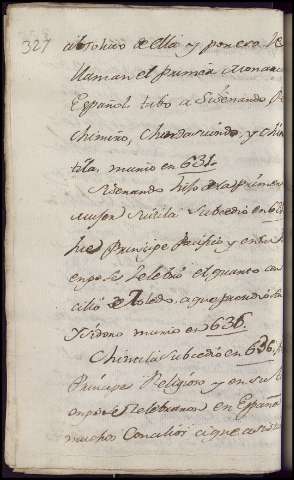 327
absoluto de ella y por eso le
llaman el primer Monarca
Español tubo a Sisenando
Chimino, Chindasuindo, y Chin
tila, murio en 631.
Sisenando hijo de la primera
muger subcedio en 63
fue Principe Pacifico y en su
se celebró el quarto con
cilio de Toledo, a que precidio Sn
Ysidoro murio en 636.
Chintila subcedio en 636.
Principe Religioso y en su
se celebraron en España
muchos Concilios a que